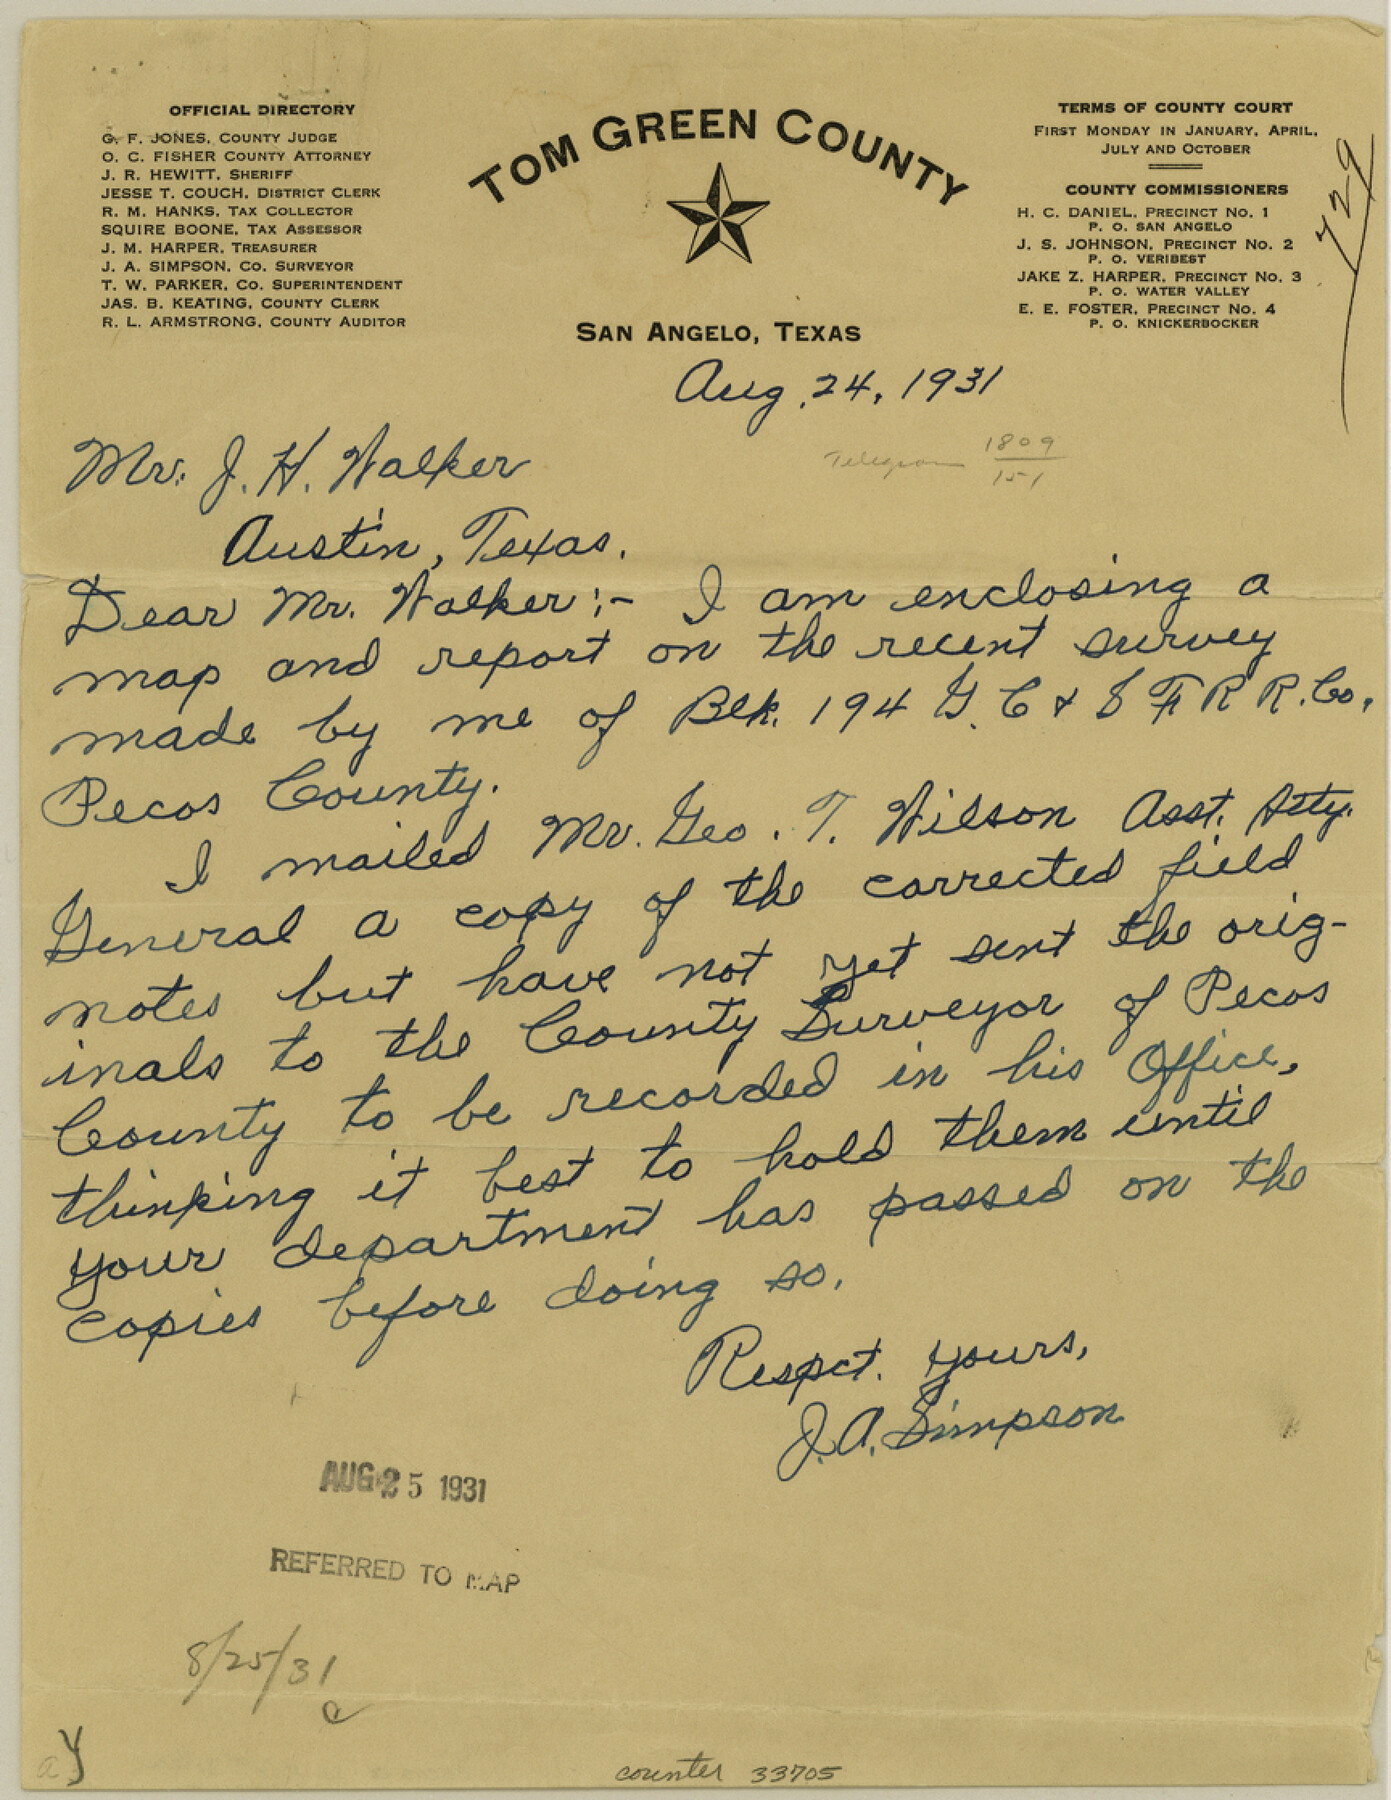 OFFICIAL DIRECTORY
G. F. JONES, COUNTY JUDGE
O. C. FISHER COUNTY ATTORNEY
J. R. HEWITT, SHERIFF
JESSE T. COUCH, DISTRICT CLERK
R. M. HANKS, TAX COLLECTOR
SQUIRE BOONE, TAX ASSESSOR
J. M. HARPER, TREASURER
J. A. SIMPSON, CO. SURVEYOR
T. W. PARKER, CO. SUPERINTENDENT
JAS. B. KEATING, COUNTY CLERK
R. L. ARMSTRONG, COUNTY AUDITOR
TOM GREEN COUNTY
SAN ANGELO, TEXAS
TERMS OF COUNTY COURT
FIRST MONDAY IN JANUARY, APRIL,
JULY AND OCTOBER
COUNTY COMMISSIONERS
H. C. DANIEL, PRECINCT NO. 1
P. O. SAN ANGELO
J. S. JOHNSON, PRECINCT NO. 2
P. O. VERIBEST
JAKE Z. HARPER, PRECINCT NO. 3
P. O. WATER VALLEY
E. E. FOSTER, PRECINCT NO. 4
P. O. KNICKERBOCKER
729
Aug. 24, 1931
Telegram 1809
151
Mr. J. H. Walker
Austin, Texas.
Dear Mr. Walker:- I am enclosing a
map and report on the recent survey
made by me of Blk. 194 G. C & S F R R. Co.,
Pecos County.
I mailed Mr. Geo. T. Wilson Asst. Atty.
General a copy of the corrected field
notes but have not yet sent the orig-
inals to the County Surveyor of Pecos
County to be recorded in his Office,
thinking it best to hold them until
your department has passed on the
copies before doing so.
Respct. yours,
J. A. Simpson
AUG 25 1931
REFERRED TO MAP
8/25/31
counter 33705